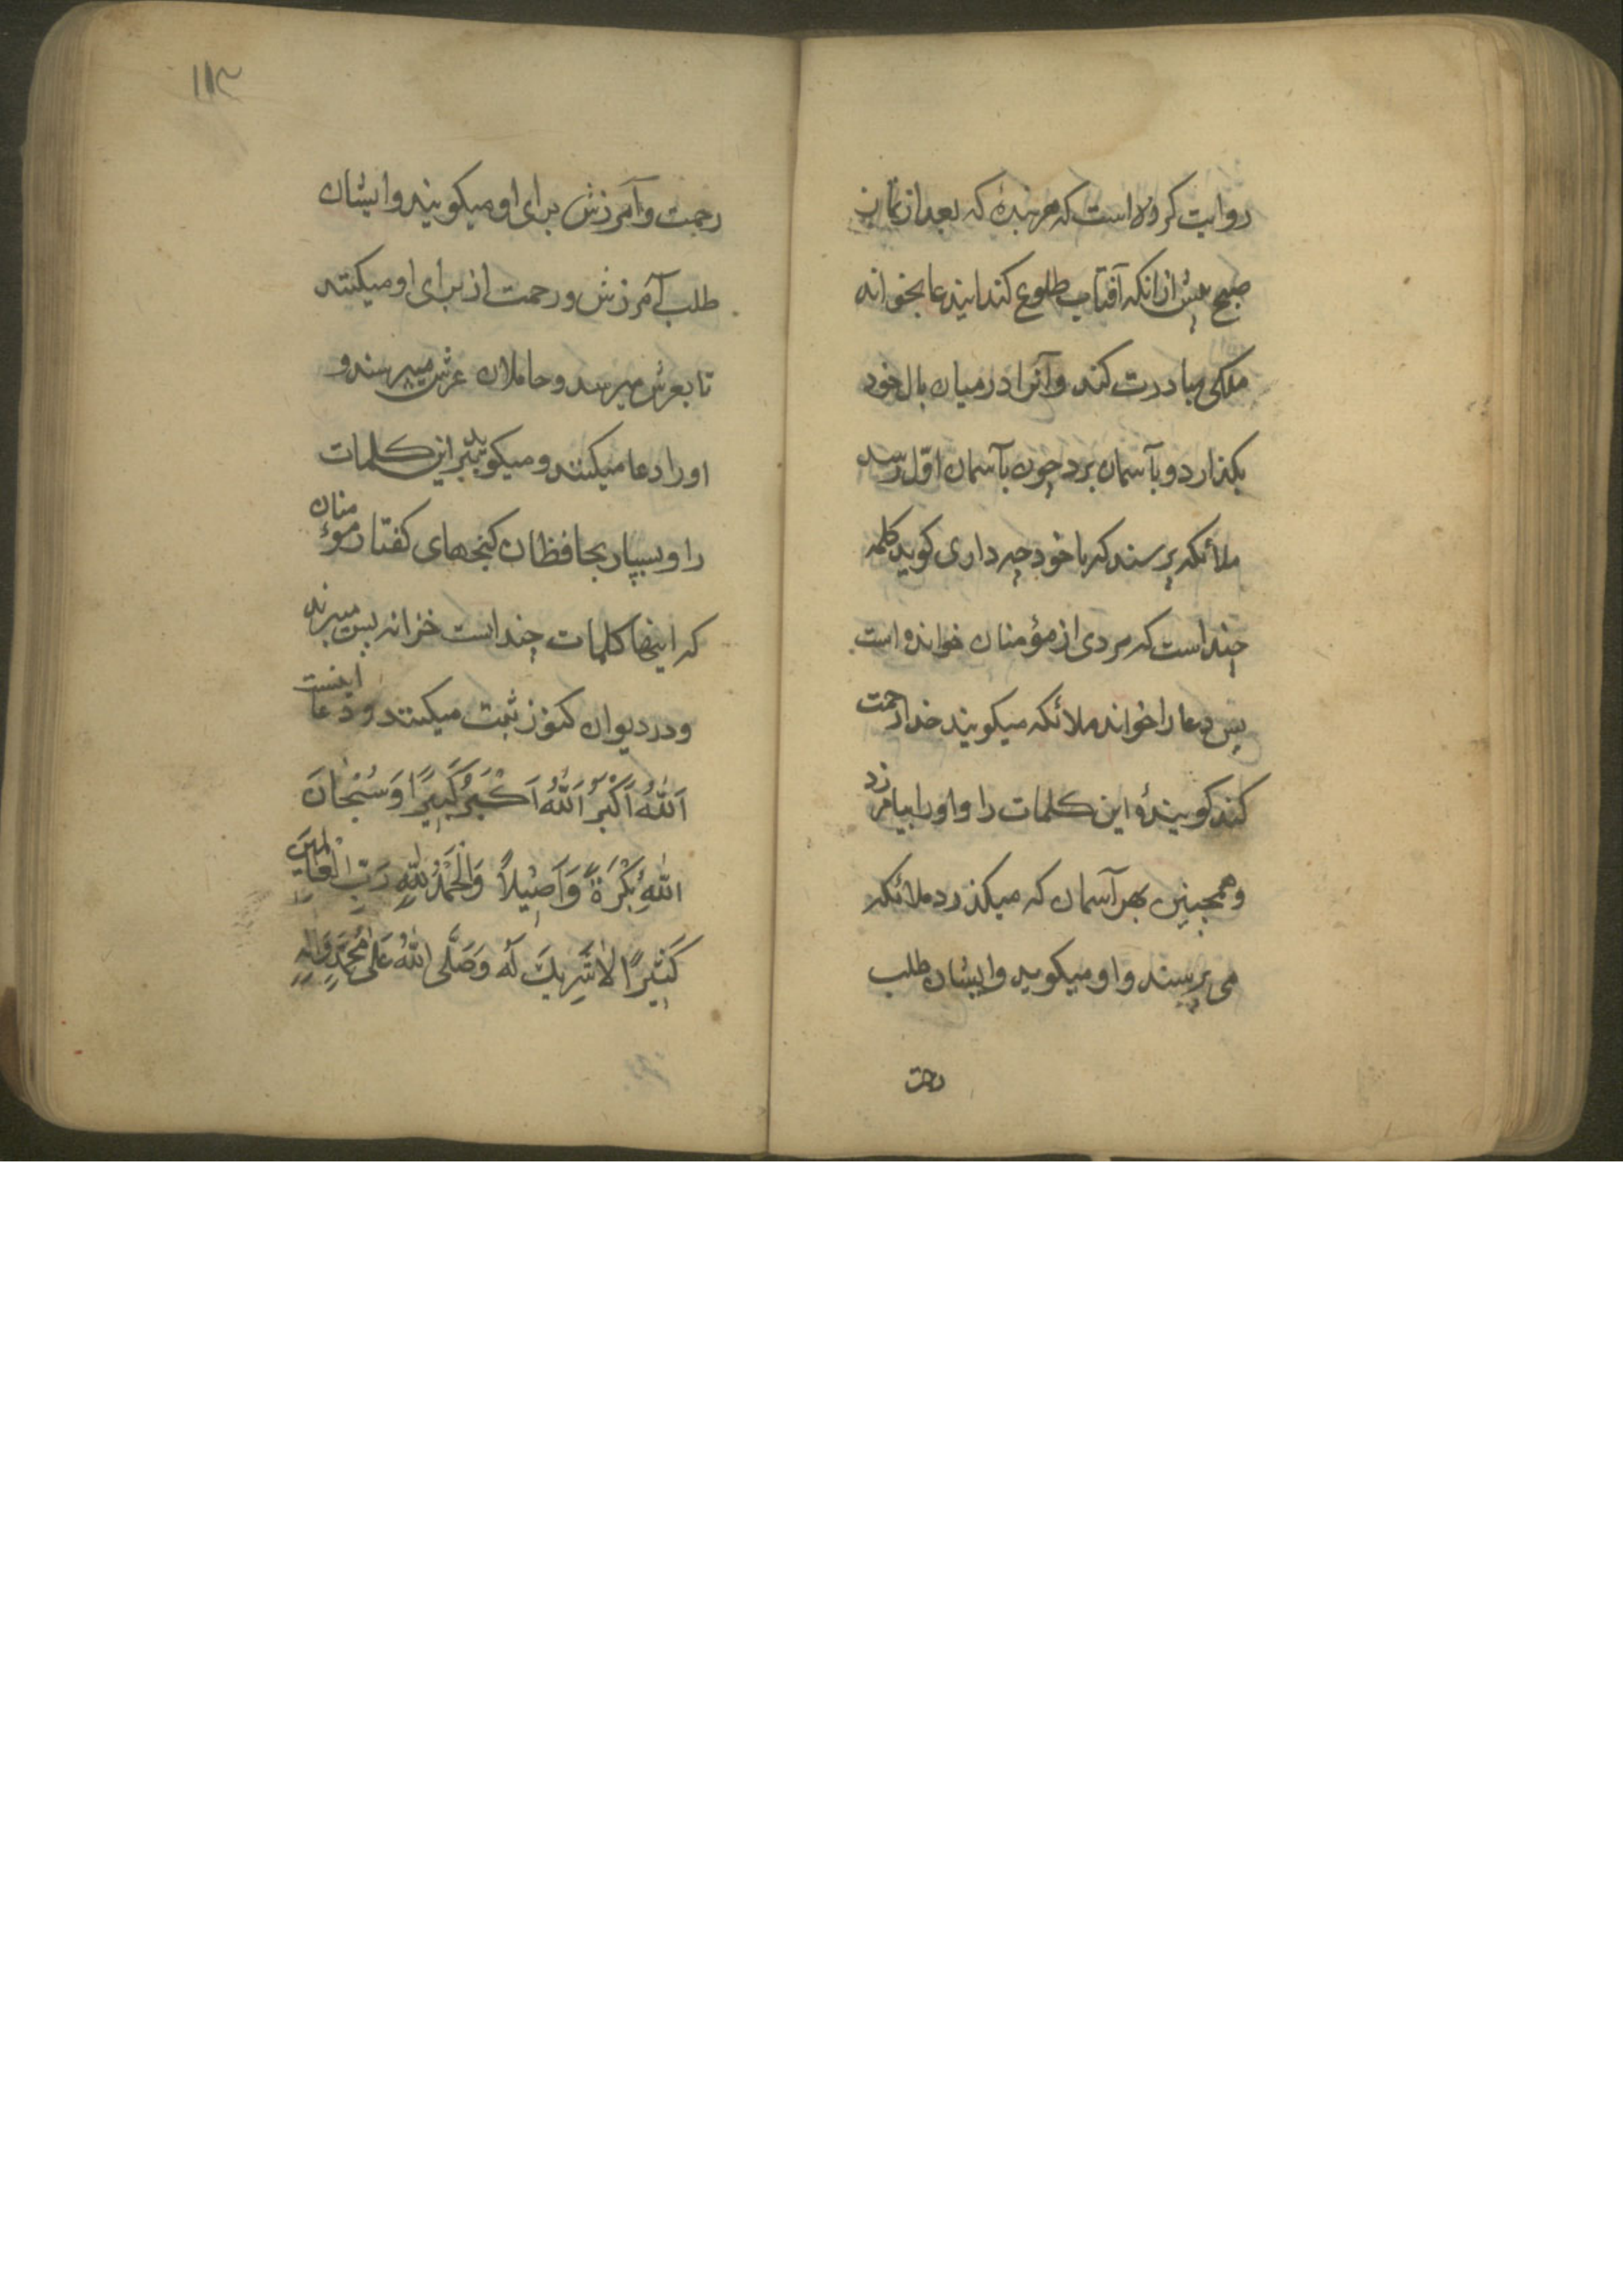 روایت کرده است که هر بنده که بعد از نماز
صبح پیش از انکه آفتاب طلوع کند ایندعا بخواند
ملکی مبادرت کند و آنرا در میان بال خود
بکذارد و بآسمان برد چون بآسمان اوّل رسد
ملائکه پرسند که با خود چه داری کوید کلمه
چند است که مردی از مؤمنان خوانده است
پس دعا را خواند ملائکه میکویند خدا رحمت
کند کویندهٔ این کلمات را و او را بیامرزد
و همچنین بهر آسمان که میکذرد ملائکه
می پرسند و او میکوید و ایشان طلب
رحمت
۱۱۳
رحمت و آمرزش برای او میکویند و ایشان
طلب آمرزش و رحمت از برای او میکنند
تا بعرش میرسد و حاملان عرش میپرسند و
او را دعا میکنند و میکویند ببر این کلمات
را و بسپار بحافظان کنجهای کفتار مؤمنان
که اینها کلمات چند است خزانه پس میبرند
و در دیوان کنوز ثبت میکنند و دعا اینست
اَللّٰهُ اَكْبَرُ اَللّٰهُ اَكْبَرُ كَبِيرًا وَسُبْحَانَ
اللّٰهِ بُكْرَةً وَاَصِيْلاً وَالْحَمْدُ لِلّٰهِ رَبِّ الْعَالَمِينَ
كَثِيْرًا لَا شَرِيكَ لَهُ وَصَلَّى اللّٰهُ عَلٰى مُحَمَّدٍ وَاٰلِهِ